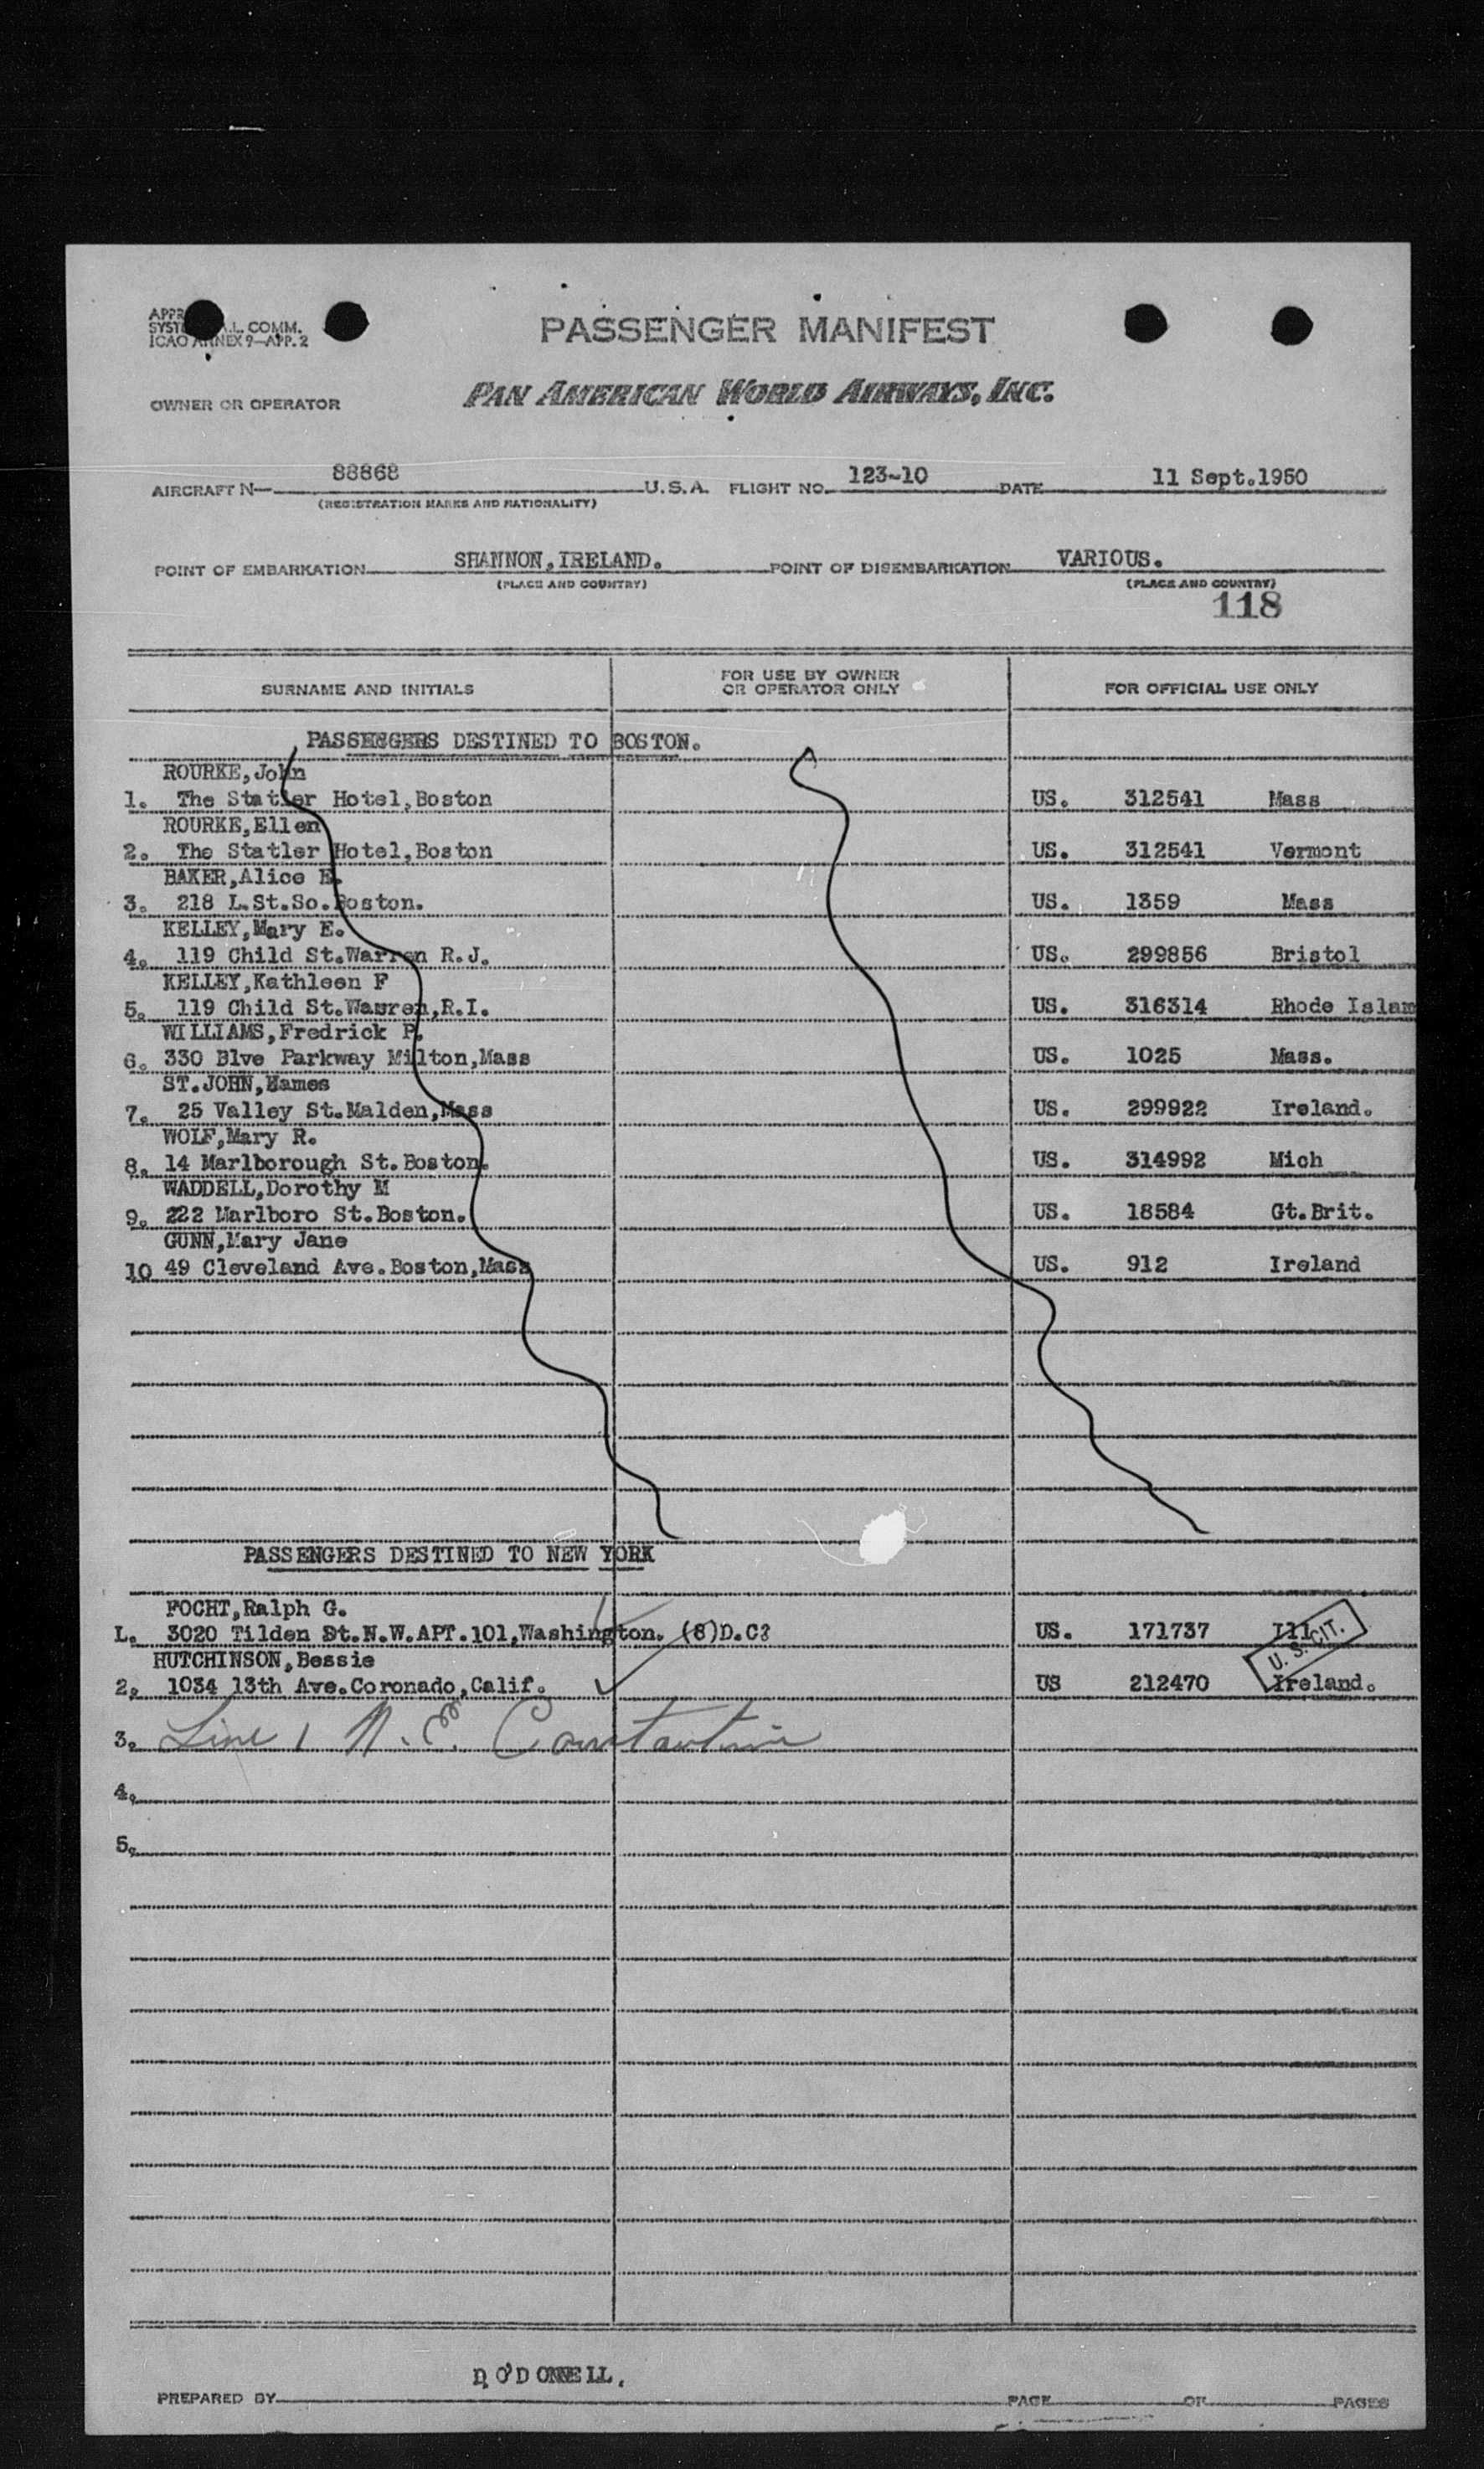 PASSENGER MANIFEST
L. COMM.
ICAO ANNEX 9—APP. 2
OWNER OR OPERATOR PAN AMERICAN WORLD AIRWAYS, INC.
AIRCRAFT N— 88868 U.S.A. FLIGHT NO. 123-10 DATE 11 Sept.1950
(REGISTRATION MARKS AND NATIONALITY)
POINT OF EMBARKATION SHANNON, IRELAND. POINT OF DISEMBARKATION VARIOUS.
(PLACE AND COUNTRY) (PLACE AND COUNTRY)
118
SURNAME AND INITIALS FOR USE BY OWNER OR OPERATOR ONLY FOR OFFICIAL USE ONLY
PASSENGERS DESTINED TO BOSTON.
ROURKE,John
1. The Statler Hotel,Boston US. 312541 Mass
ROURKE,Ellen
2. The Statler Hotel,Boston US. 312541 Vermont
BAKER,Alice E.
3. 218 L.St.So.Boston. US. 1359 Mass
KELLEY,Mary E.
4. 119 Child St.Warren R.J. US. 299856 Bristol
KELLEY,Kathleen F
5. 119 Child St.Warren,R.I. US. 316314 Rhode Islan
WILLIAMS,Fredrick P.
6. 330 Blve Parkway Milton,Mass US. 1025 Mass.
ST.JOHN,
7. 25 Valley St.Malden,Mass US. 299922 Ireland.
WOLF,Mary R.
8. 14 Marlborough St.Boston. US. 314992 Mich
WADDELL,Dorothy M
9. 222 Marlboro St.Boston. US. 18584 Gt.Brit.
GUNN,Mary Jane
10 49 Cleveland Ave.Boston,Mass US. 912 Ireland
PASSENGERS DESTINED TO NEW YORK
FOCHT,Ralph G.
L. 3020 Tilden St.N.W.APT.101,Washington. (8)D.C? US. 171737 Ill
U. S. CIT.
HUTCHINSON,Bessie
2. 1034 13th Ave.Coronado,Calif. US 212470 Ireland.
3. Line 1 N. E. Constantine
4.
5.
PREPARED BY D O'DONNELL. PAGE OF PAGES